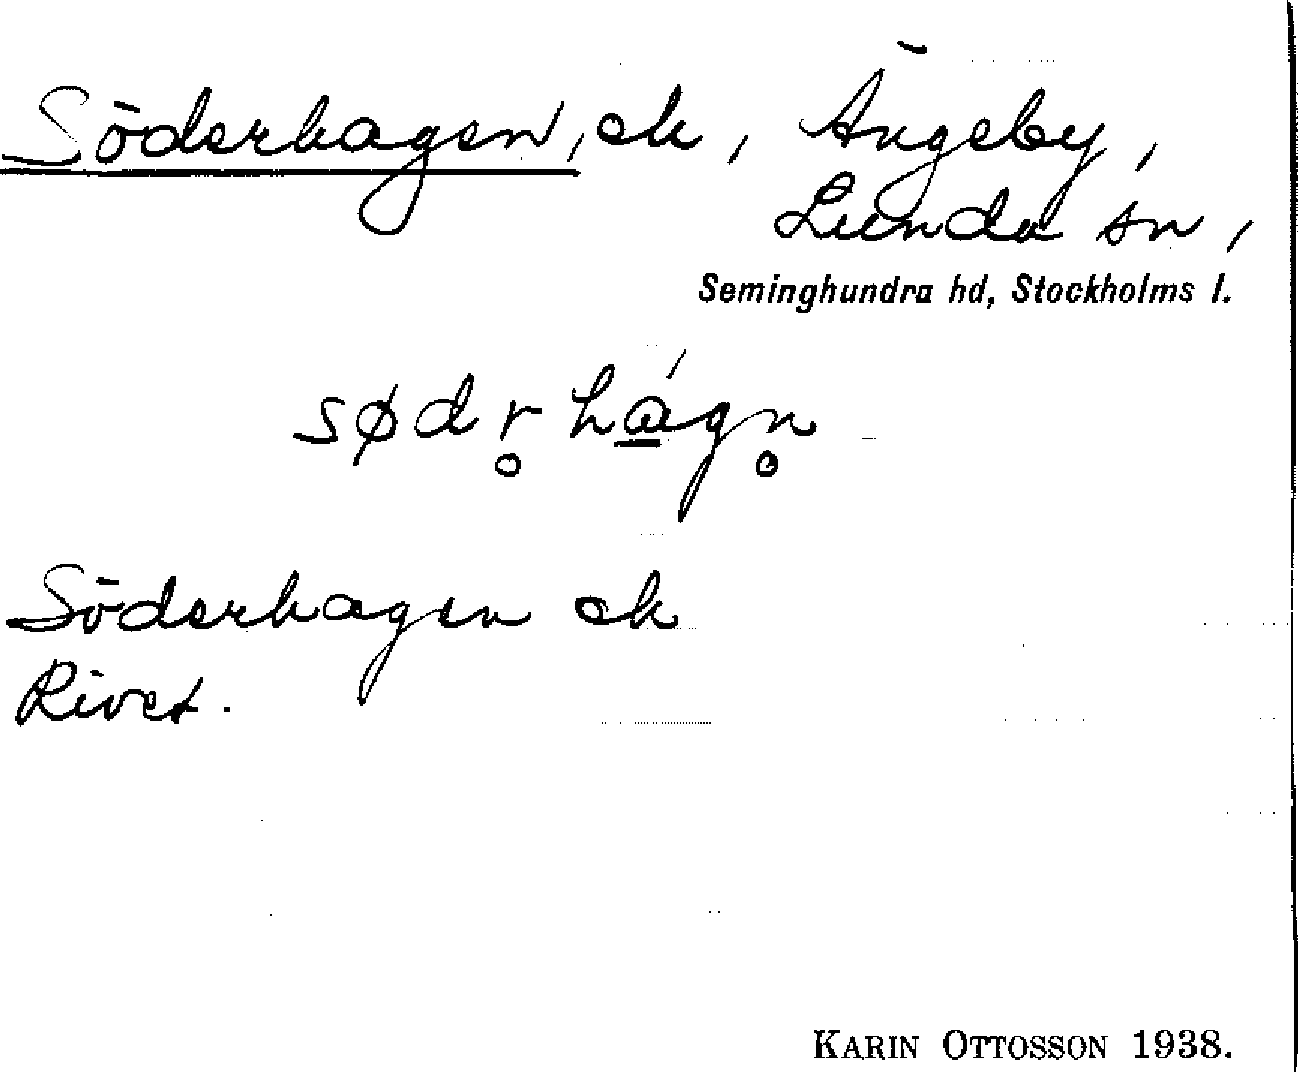 Söderhagen, ek, Ängeby,
Lunda sn,
Seminghundra hd, Stockholms l.
sødr̥hágn̥
Söderhagen ek
Rivet.
KARIN OTTOSSON 1938.